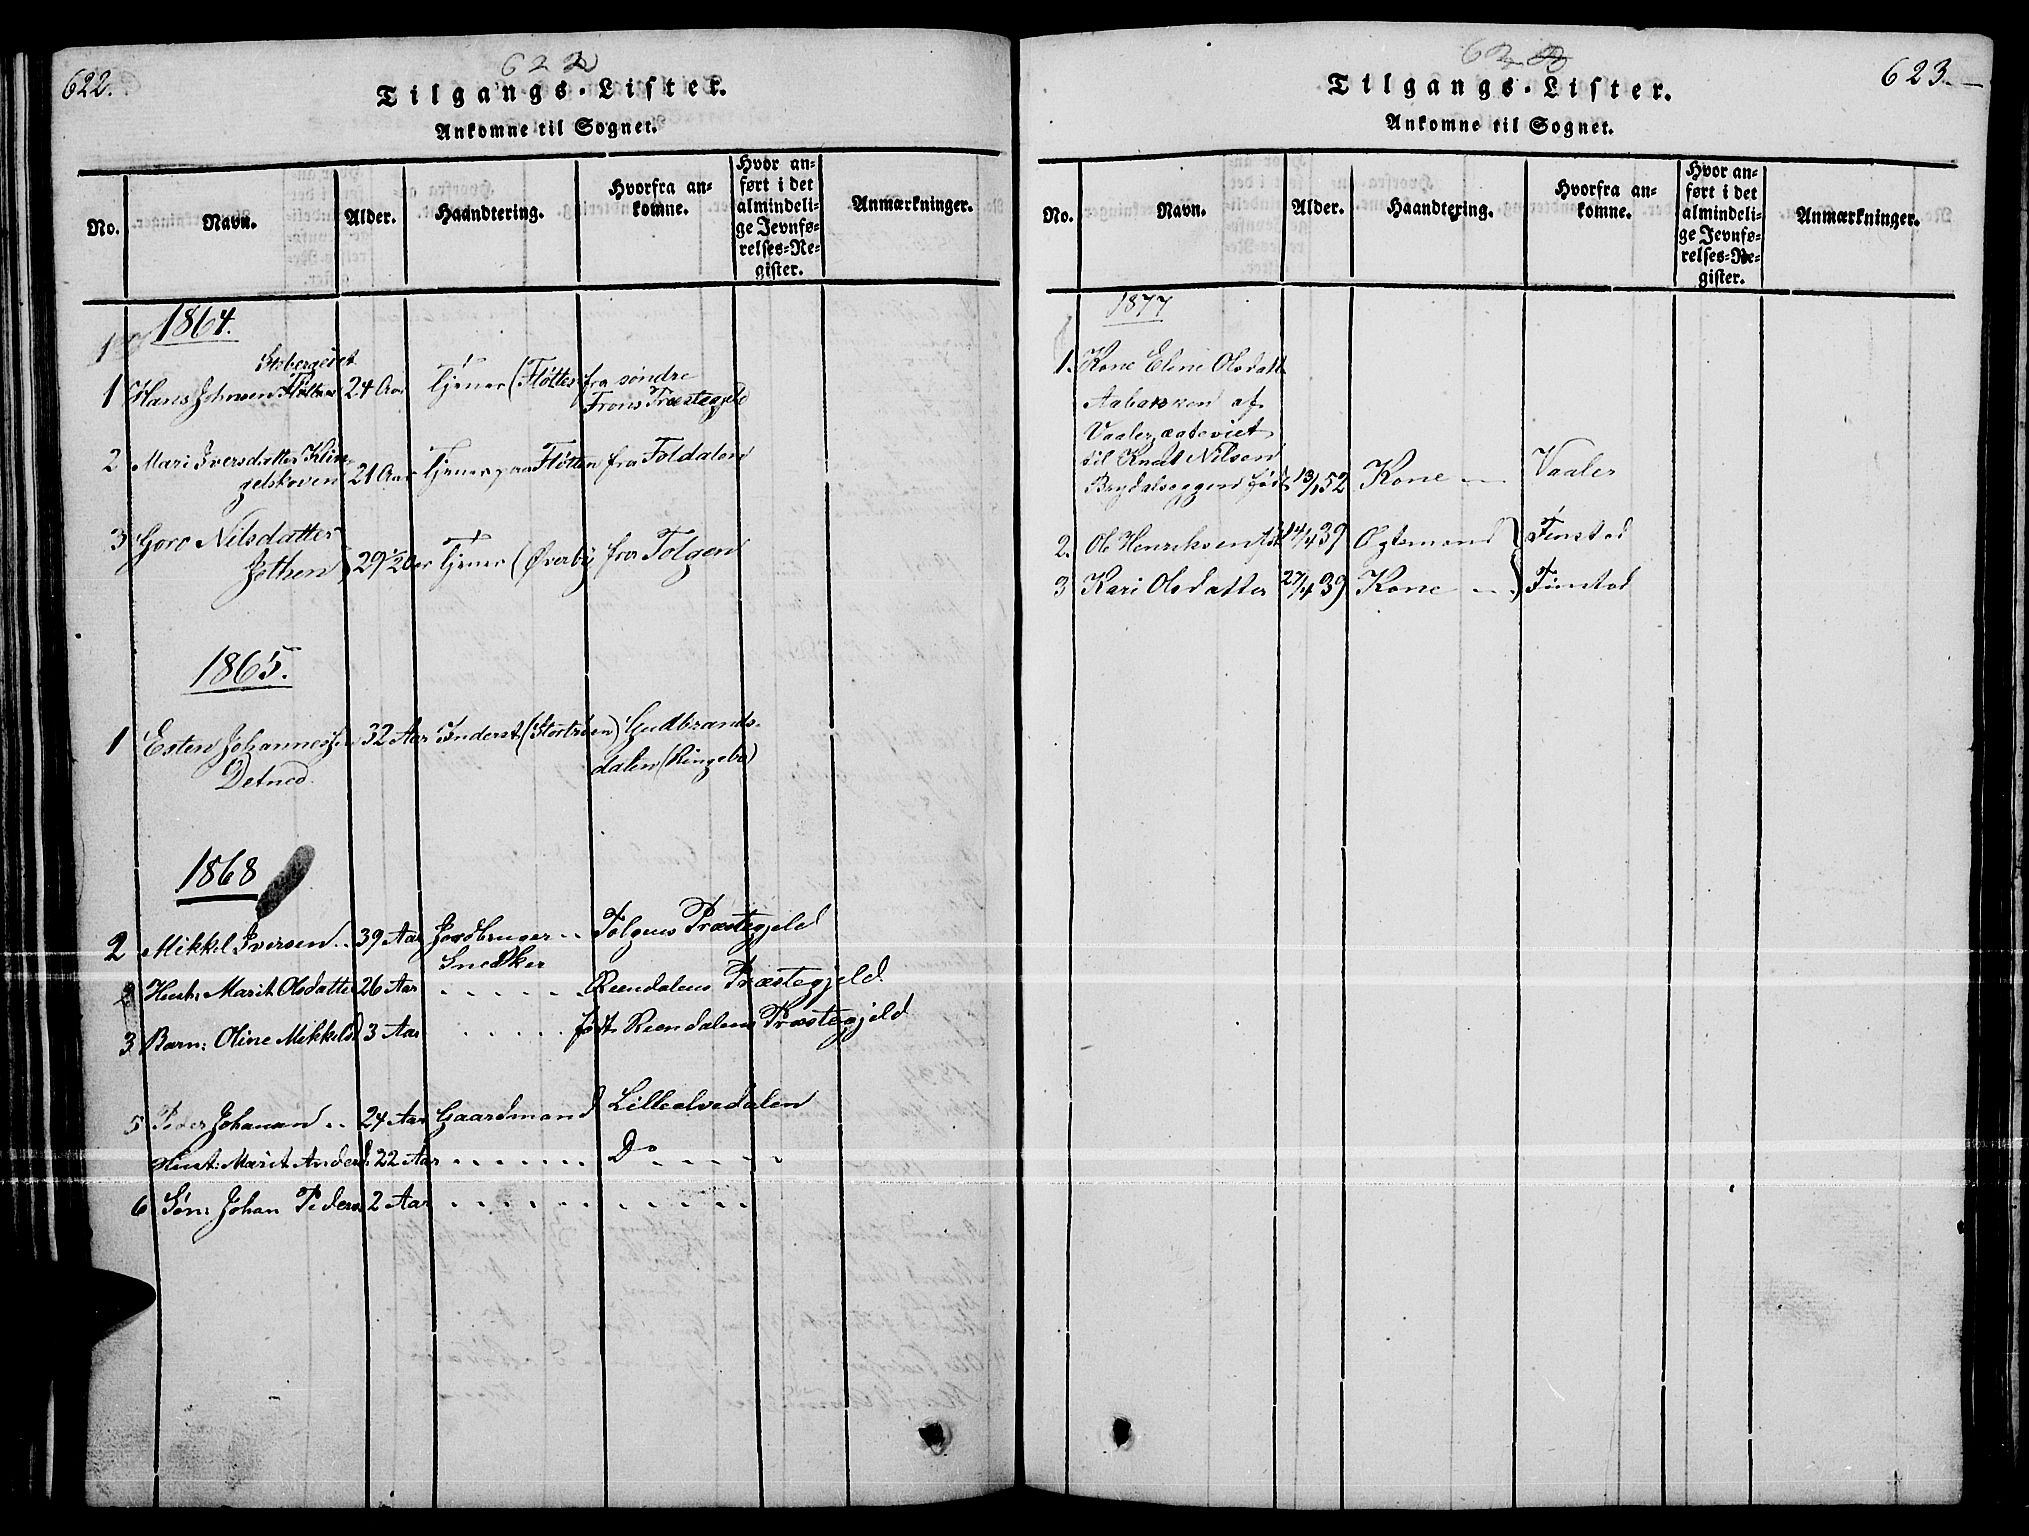 622.
622
Tilgangs-Lister.
Ankomne til Sognet.
No.
Navn.
Alder.
Haandtering.
Hvorfra an-
komne.
Hvor an-
ført i det
almindeli-
ge Jevnfø-
relses-Re-
gister.
Anmærkninger.
1864.
1 Hans Johnsen 24 Aar Tjener (Fløtten fra søndre
Frons Præstegjeld
2 Mari Iversdatter Klin-
gelskoven 21 Aar Tjener paa Fløtten fra Foldalen
3 Goro Nilsdatter
29 1/2 Aar Tjener (Øverby fra Tolgen
1865.
1 Esten Johannessen 32 Aar Inderst (Stortrøen) Gudbrands-
dalen (Ringebo)
1868
2 Mikkel Iversen 39 Aar Jordbruger Tolgens Præstegjeld
Snedker
Hust: Marit Olsdatter 26 Aar Reendalens Præstegjeld
3 Barn: Oline Mikkelsd 3 Aar født i Reendalens Præstegjeld
5 Peder Johansen 24 Aar Gaardmand Lilleelvedalen
Hust: Marit Andersd. 22 Aar Do
6 Søn: Johan Peders 2 Aar
623.
Tilgangs-Lister.
Ankomne til Sognet.
No.
Navn.
Alder.
Haandtering.
Hvorfra an-
komne.
Hvor an-
ført i det
almindeli-
ge Jevnfø-
relses-Re-
gister.
Anmærkninger.
1877
1. Kone Eline Olsdatt.
Aabakken af
Vaaler, ægteviet
til Knut Nilsen
født 13/1 52 Kone Vaaler
2. Ole Henriksen 14/4 39 Finstad
3 Kari Olsdatter 27/4 39 Kone Finstad